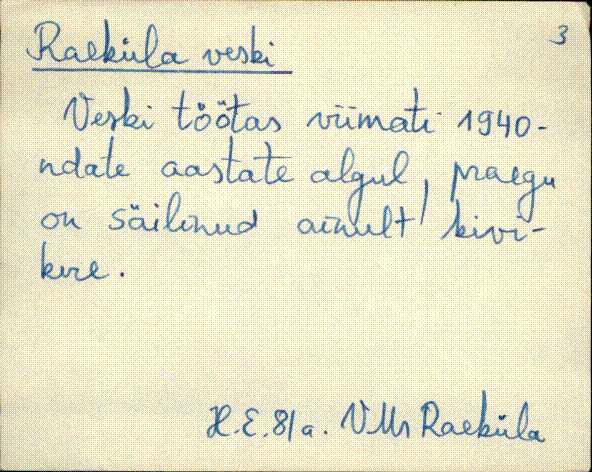 3
Raeküla veski
Veski töötas viimati 1940-
ndate aastate algul, praegu
on säilinud ainult kivi-
kere.
H.E.81a. VMr Raeküla